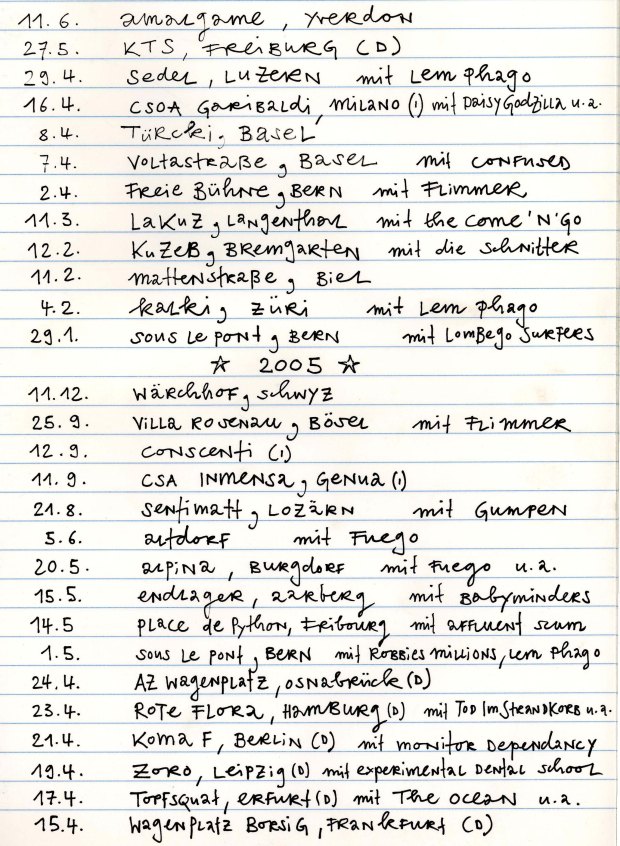 11.6. amalgame, Yverdon
27.5. KTS, Freiburg (D)
29.4. Sedel, Luzern mit Lem Phago
16.4. CSOA Garibaldi, Milano (I) mit Daisy Godzilla u.a.
8.4. Türcki, Basel
7.4. Voltastraße, Basel mit Confused
2.4. Freie Bühne, Bern mit Flimmer
11.3. LaKuZ, Langenthal mit the Come'N'Go
12.2. KuZeB, Bremgarten mit die Schnitter
11.2. Mattenstraße, Biel
4.2. Kalki, Züri mit Lem Phago
29.1. Sous le Pont, Bern mit Lombego Surfers
☆ 2005 ☆
11.12. Wärchhof, Schwyz
25.9. Villa Rosenau, Bösel mit Flimmer
12.9. Conscenti (I)
11.9. CSA Inmensa, Genua (I)
21.8. Sentimatt, Lozärn mit Gumpen
5.6. Altdorf mit Fuego
20.5. Alpina, Burgdorf mit Fuego u.a.
15.5. Endlager, Aarberg mit Babyminders
14.5 Place de Python, Fribourg mit Affluent Scum
1.5. Sous le Pont, Bern mit Robbies Millions, Lem Phago
24.4. AZ Wagenplatz, Osnabrück (D)
23.4. Rote Flora, Hamburg (D) mit Tod Im Strandkorb u.a.
21.4. Koma F, Berlin (D) mit Monitor Dependancy
19.4. Zoro, Leipzig (D) mit experimental Dental School
17.4. Topfsquat, Erfurt (D) mit The Ocean u.a.
15.4. Wagenplatz Borsig, Frankfurt (D)